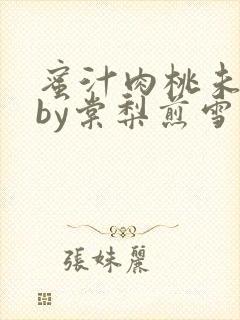 蜜汁肉桃未
by棠梨煎雪
張妹麗